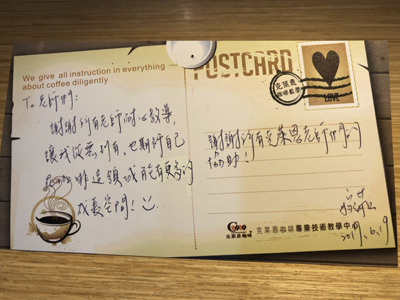 We give all instruction in everything
about coffee diligently
POSTCARD
克萊恩
咖啡教學
LOVE
To 老師們:
謝謝所有老師耐心教導,
讓我從無到有,也期許自己
在咖啡這領域能有更多的
成長空間!
謝謝所有克萊恩老師們的
協助!
克萊恩咖啡 專業技術教學中心
2019.6.19